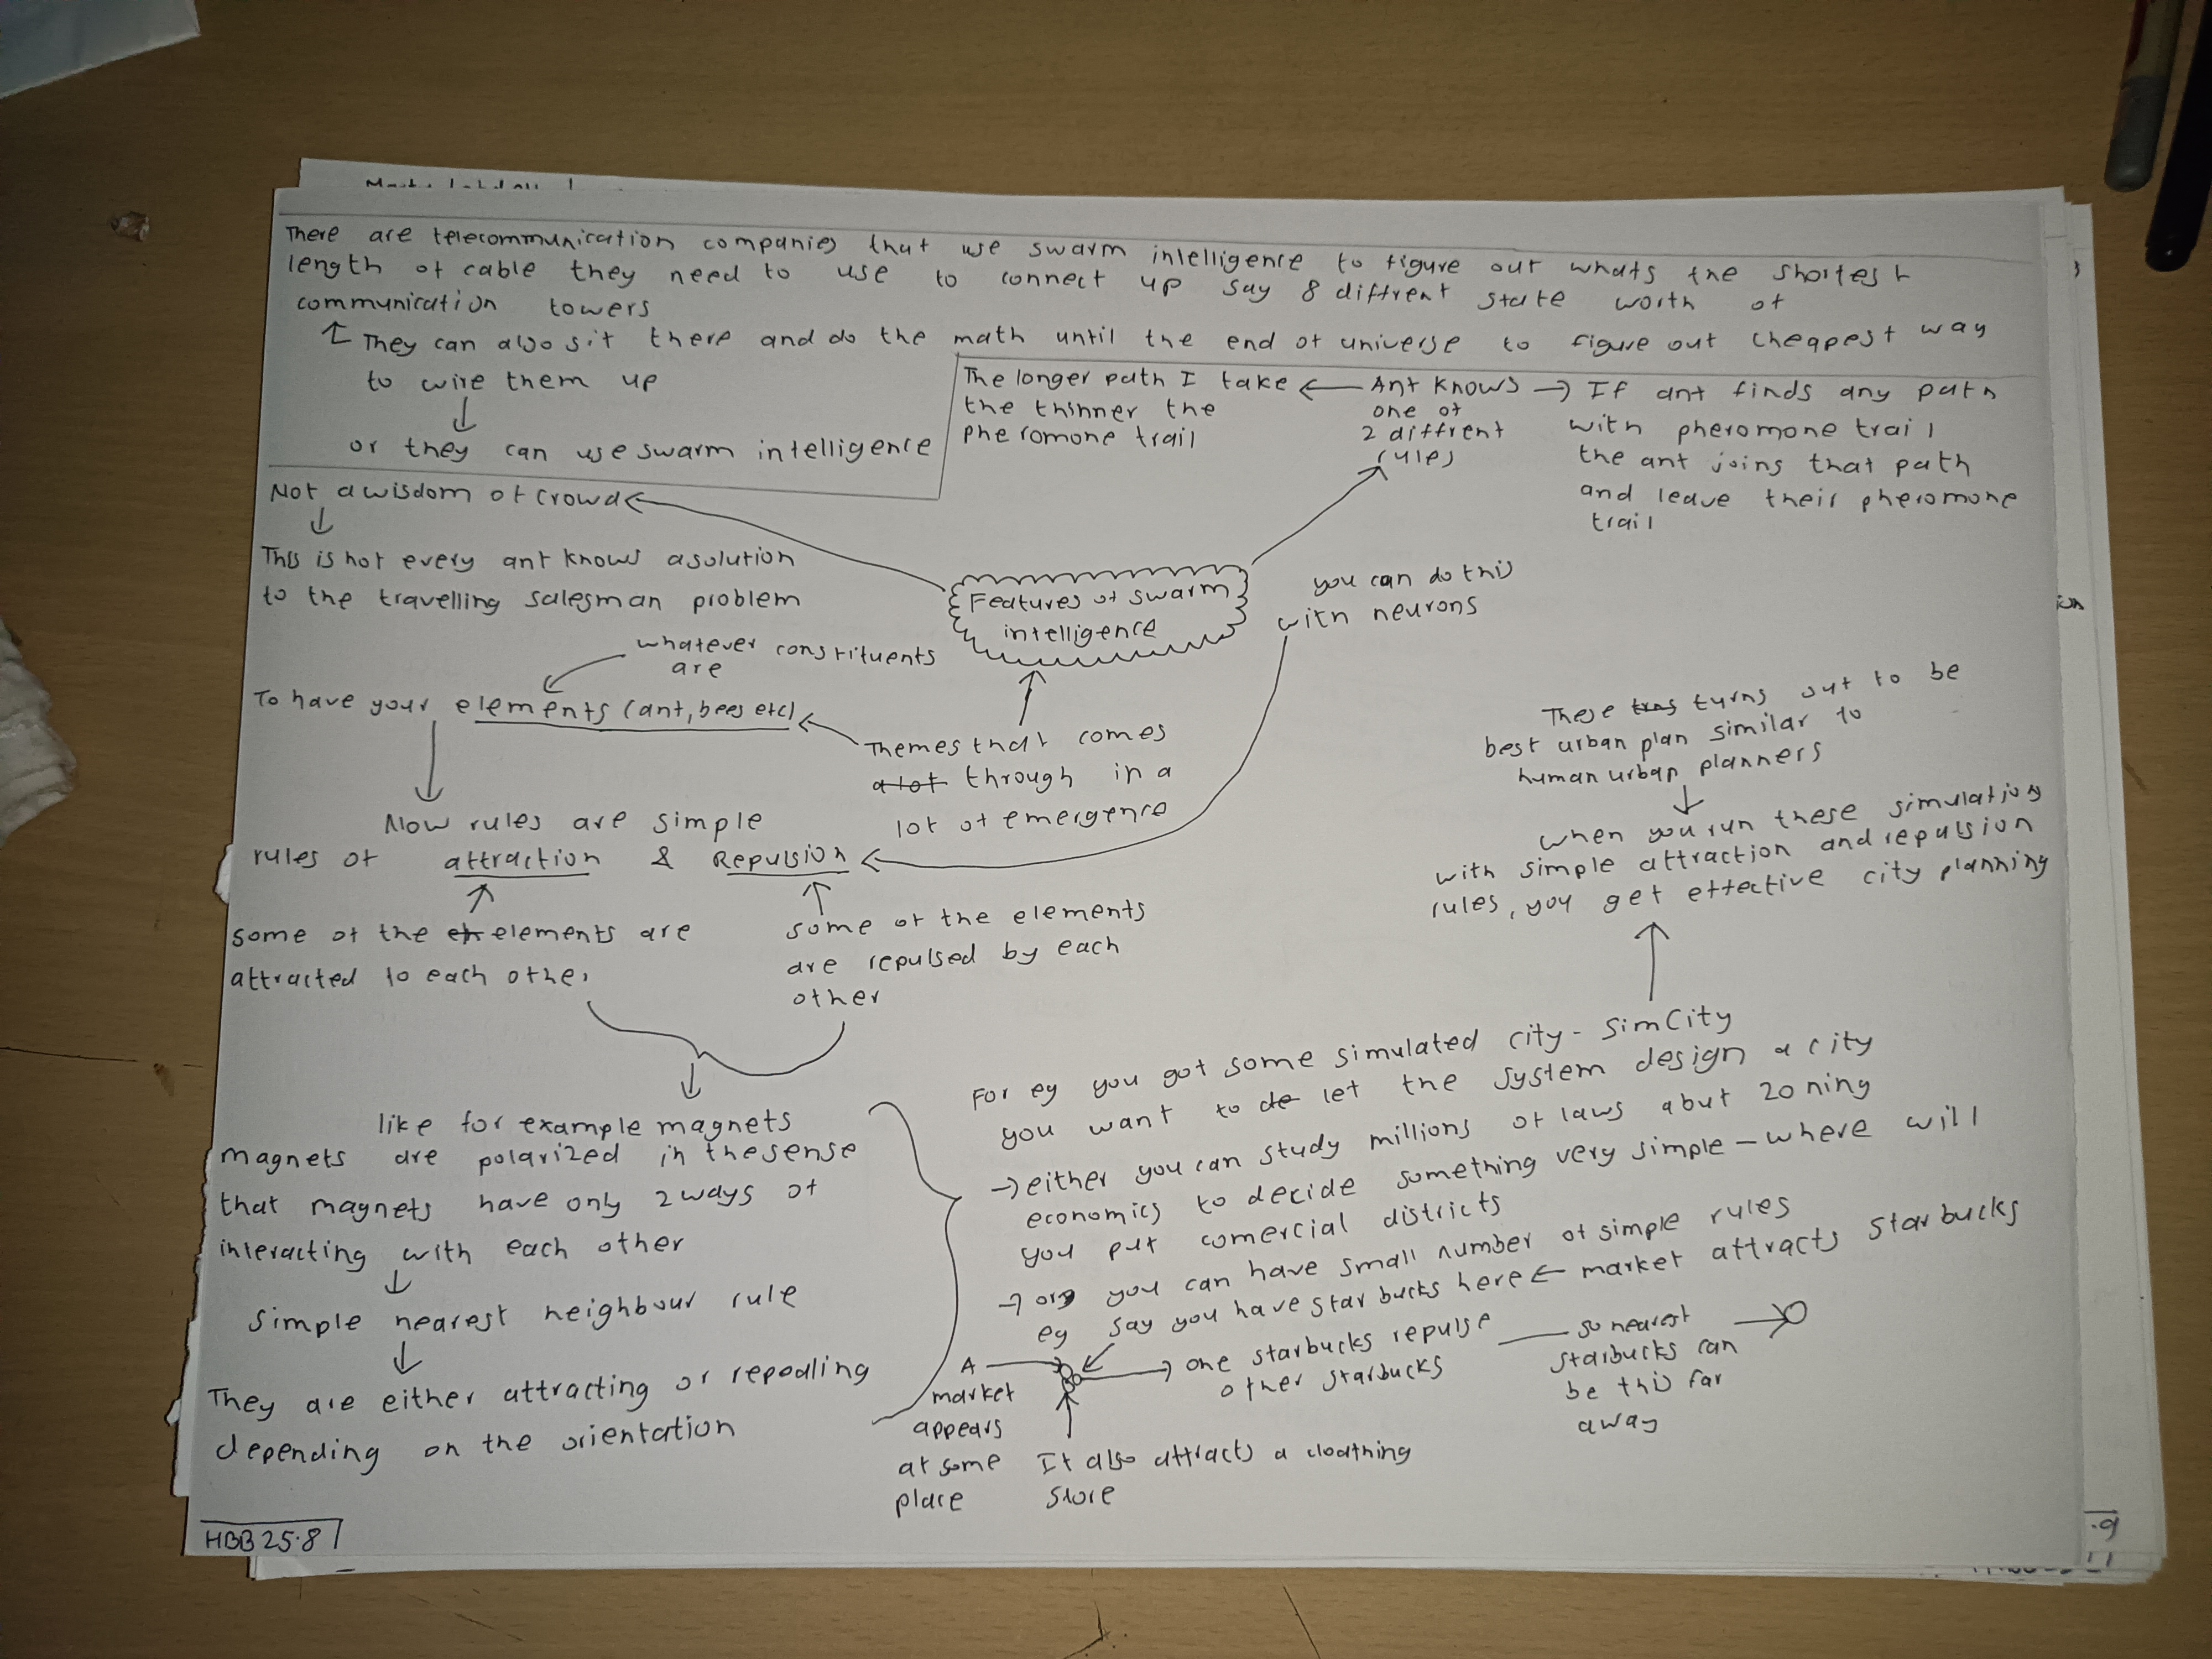 There are telecommunication companies that use swarm intelligence to figure out whats the shortest
length of cable they need to use to connect up say 8 diffrent state worth of
communication towers
They can also sit there and do the math until the end of universe to figure out cheapest way
to wire them up
or they can use swarm intelligence
The longer path I take
the thinner the
pheromone trail
Ant knows
one of
2 diffrent
rules
If ant finds any path
with pheromone trail
the ant joins that path
and leave their pheromone
trail
Not a wisdom of crowd
This is not every ant knows a solution
to the travelling salesman problem
Features of swarm
intelligence
you can do this
with neurons
whatever constituents
are
To have your elements (ant, bees etc)
Themes that comes
a lot through in a
lot of emergence
Now rules are simple
rules of attraction & Repulsion
some of the elements are
attracted to each other
some of the elements
are repulsed by each
other
like for example magnets
magnets are polarized in the sense
that magnets have only 2 ways of
interacting with each other
simple nearest neighbour rule
They are either attracting or repealling
depending on the orientation
These turns out to be
best urban plan similar to
human urban planners
when you run these simulations
with simple attraction and repulsion
rules, you get effective city planning
For eg you got some simulated city - SimCity
you want to let the system design a city
→ either you can study millions of laws abut zoning
economics to decide something very simple - where will
you put comercial districts
→ or you can have small number of simple rules
eg say you have starbucks here ← market attracts starbucks
A
market
appears
at some
place
one starbucks repulse
other starbucks
so nearest
starbucks can
be this far
away
It also attracts a cloathing
store
HBB 25.8